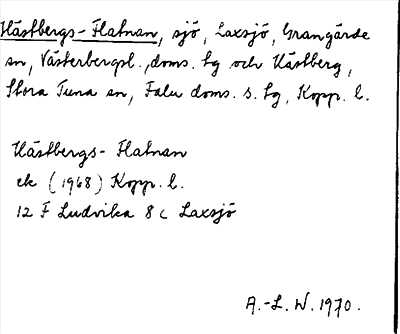 Hästbergs-Flatnan, sjö, Laxsjö, Grangärde
sn, Västerbergsl., doms. hg och Hästberg,
Stora Tuna sn, Falu doms. s. hg, Kopp. l.
Hästbergs-Flatnan
ek (1968) Kopp. l.
12 F Ludvika 8 c Laxsjö
A.-L. W. 1970.